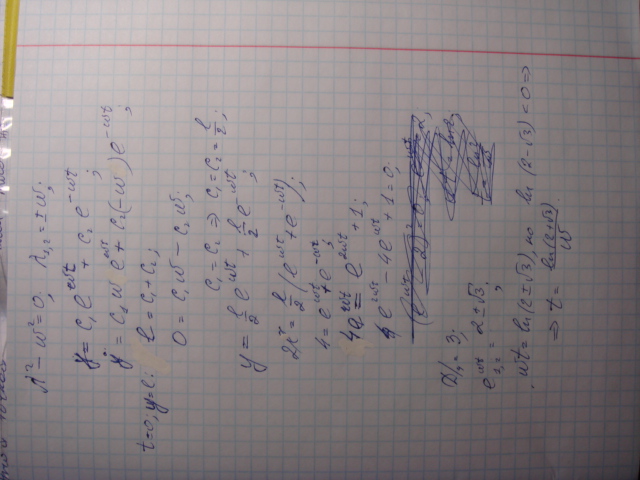 λ² − w² = 0; λ₁,₂ = ± w;
y = C₁e^{wt} + C₂e^{−wt};
ẏ = C₁we^{wt} + C₂(−w)e^{−wt};
t=0; y=l: l = C₁ + C₂;
0 = C₁w − C₂w;
C₁ = C₂ ⇒ C₁ = C₂ = l/2;
y = l/2 e^{wt} + l/2 e^{−wt};
2l = l/2 (e^{wt} + e^{−wt});
4 = e^{wt} + e^{−wt};
4e^{wt} = e^{2wt} + 1;
e^{2wt} − 4e^{wt} + 1 = 0;
D/4 = 3;
e^{wt}₁,₂ = 2 ± √3;
wt = ln(2 ± √3), но ln(2 − √3) < 0 ⇒
⇒ t = ln(2+√3)/w